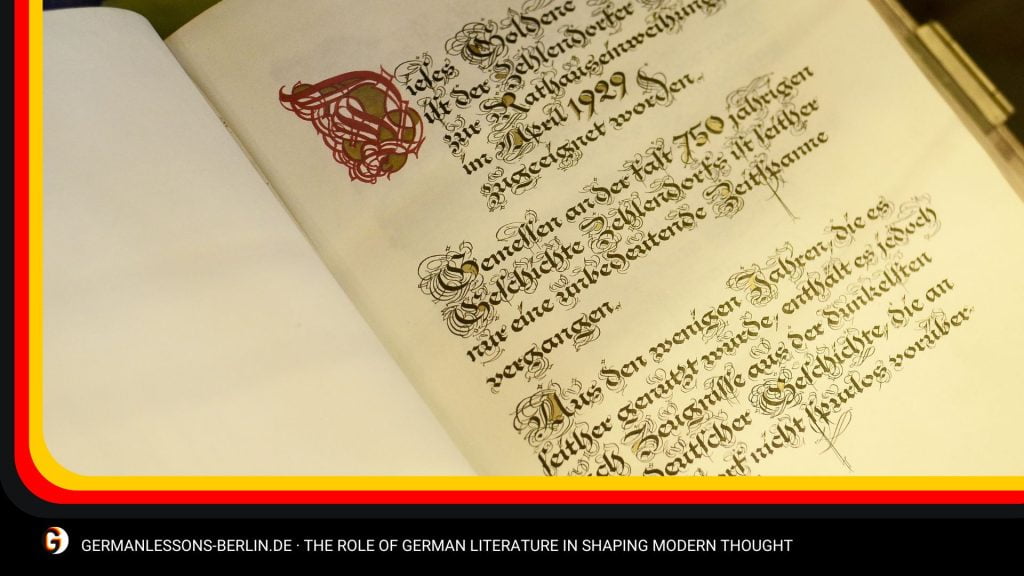 Dieses Goldene
ist der Zehlendorfer
zur Rathauseinweihung
im April 1929
zugeeignet worden.
Gemessen an der fast 750 jährigen
Geschichte Zehlendorfs ist seither
nur eine unbedeutende Zeitspanne
vergangen.
Aus den wenigen Jahren, die es
seither genutzt wurde, enthält es jedoch
Zeugnisse aus der dunkelsten
deutscher Geschichte, die an
nicht spurlos vorüber-
G GERMANLESSONS-BERLIN.DE · THE ROLE OF GERMAN LITERATURE IN SHAPING MODERN THOUGHT